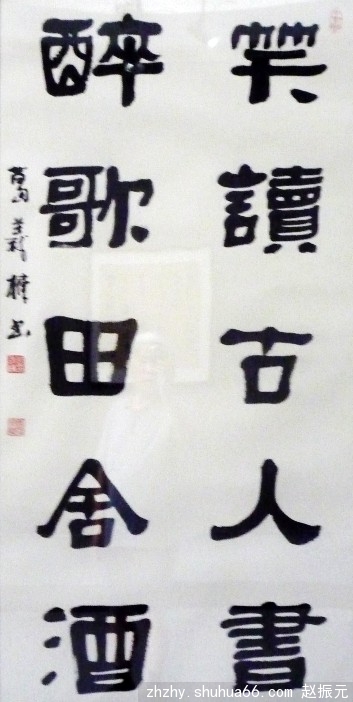 笑讀古人書
醉歌田舍酒
zhzhy.shuhua66.com 赵振元